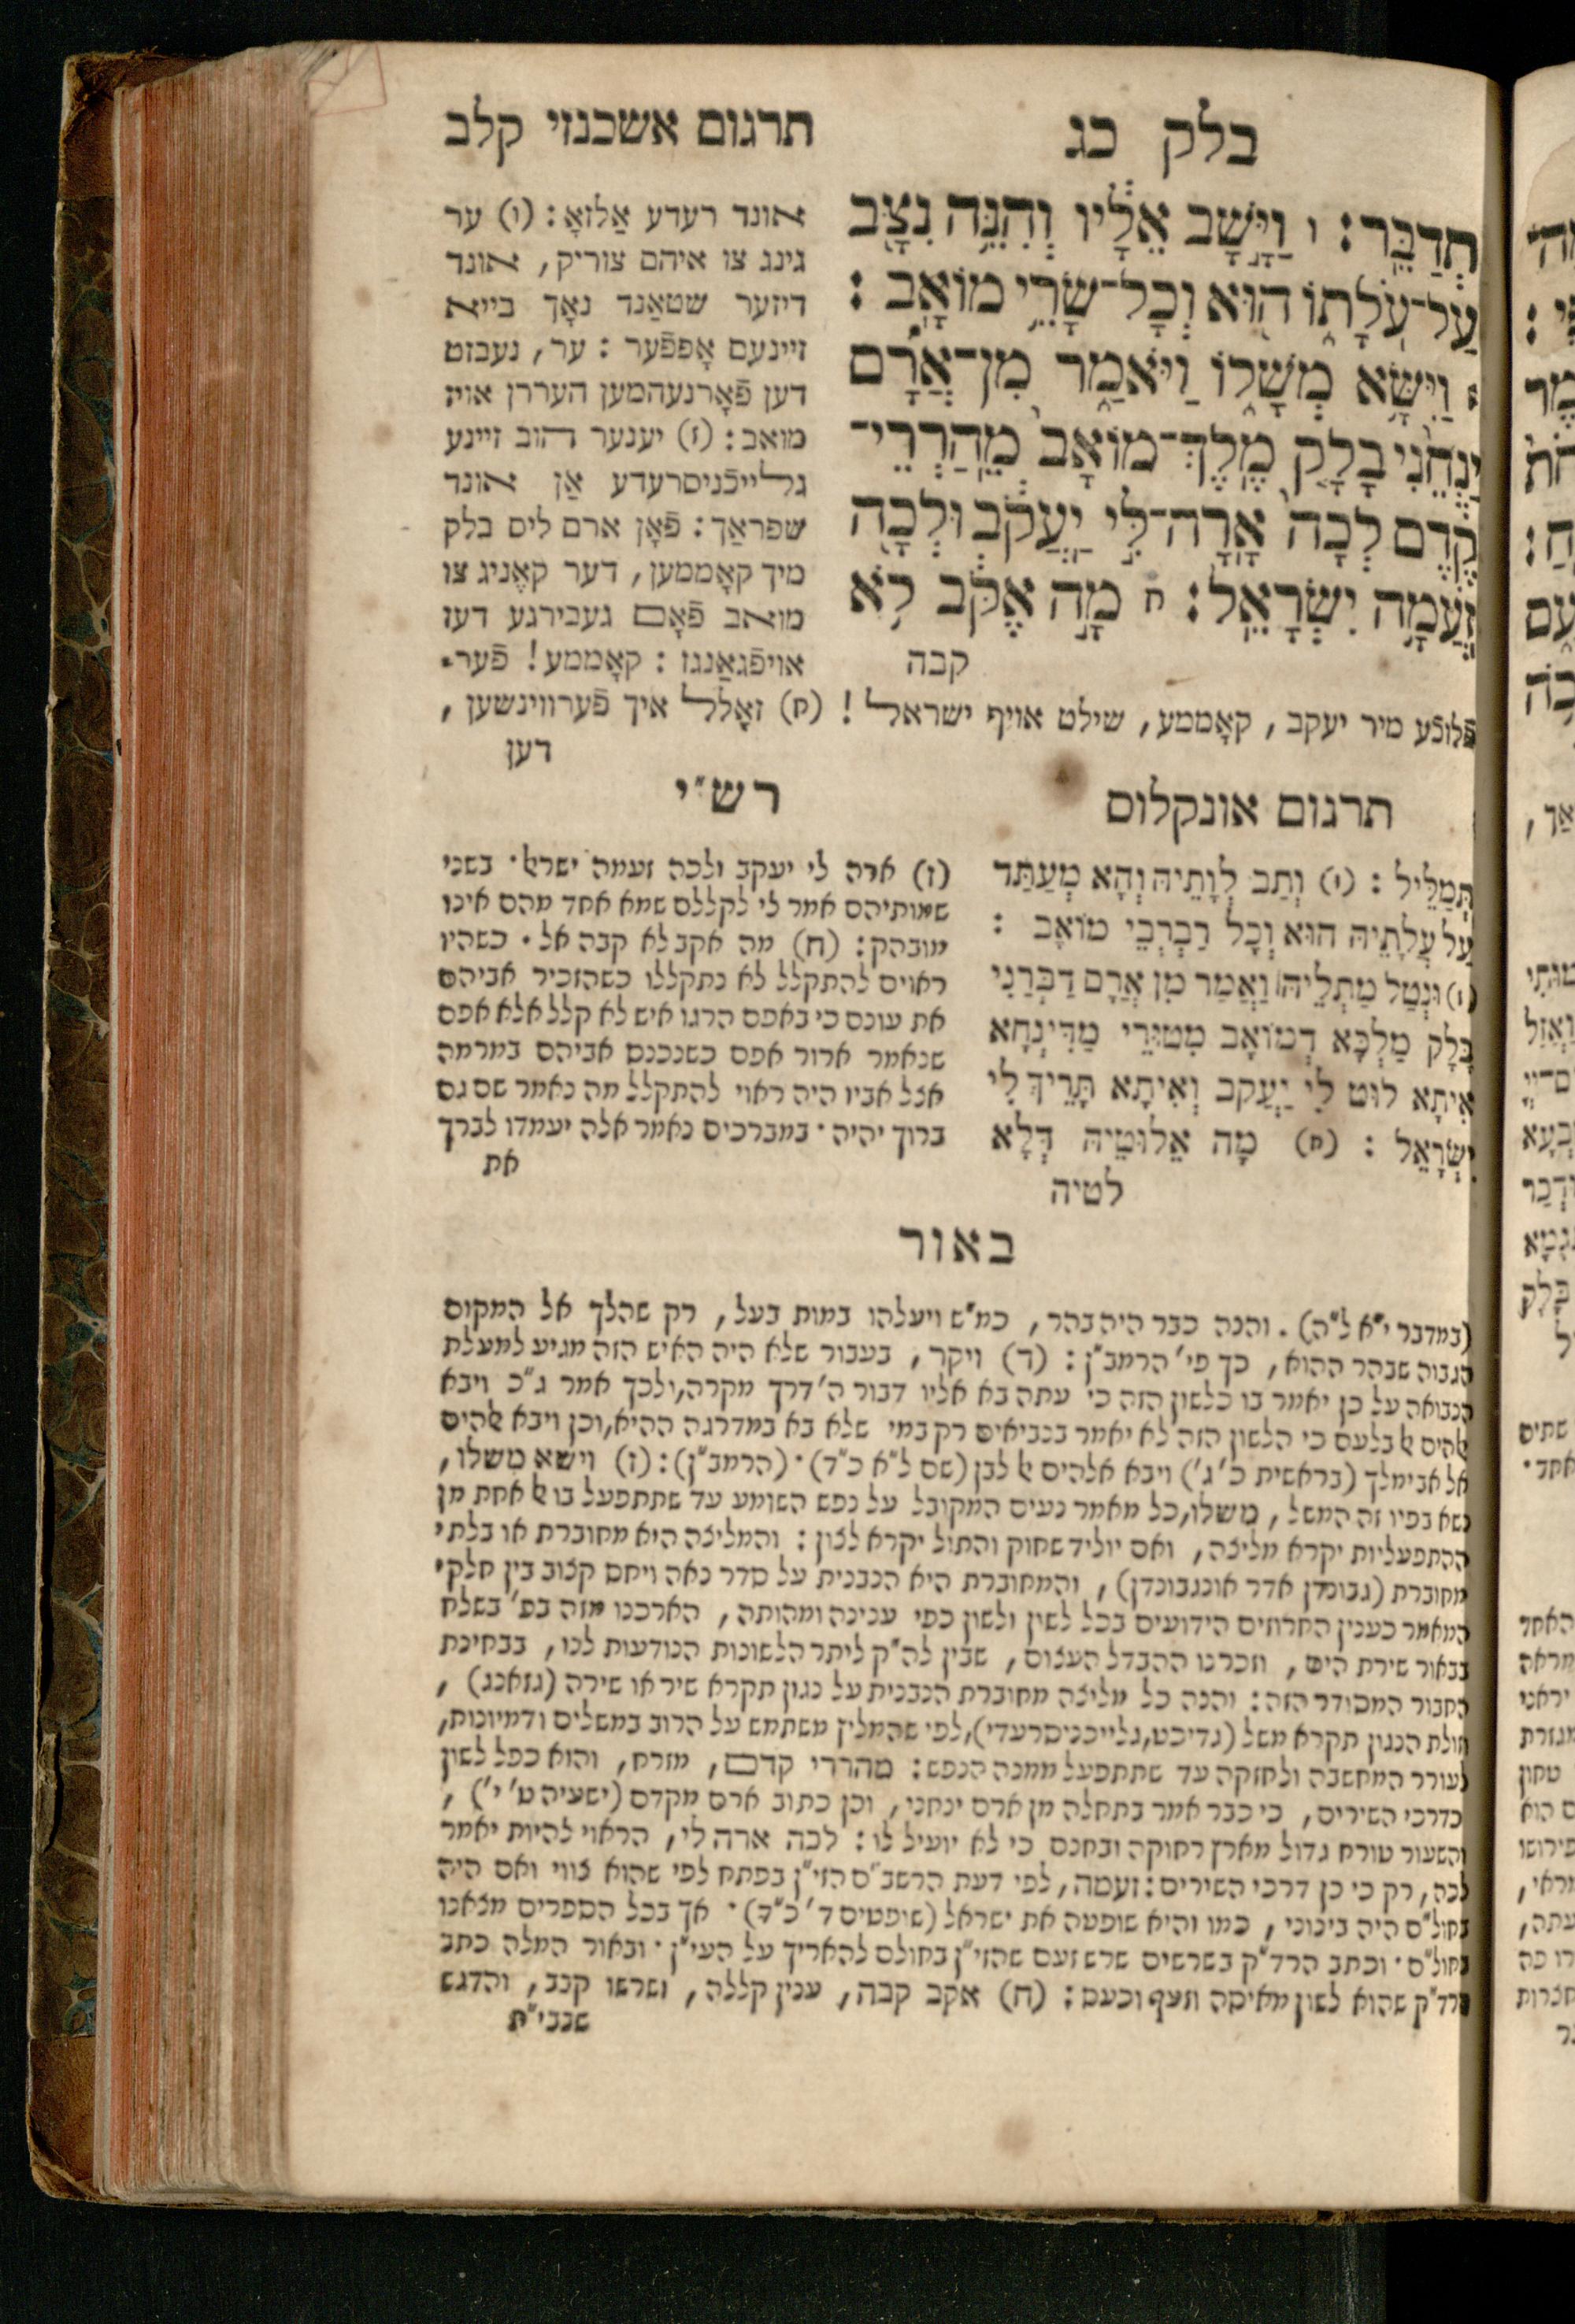 בלק כג
תרגום אשכנזי קלב
תְדַבֵּֽר׃ ו וַיָּ֣שָׁב אֵלָ֔יו וְהִנֵּ֥ה נִצָּ֖ב
עַל־עֹֽלָת֑וֹ ה֖וּא וְכָל־שָׂרֵ֥י מוֹאָֽב׃
וַיִּשָּׂ֥א מְשָׁל֖וֹ וַיֹּאמַ֑ר מִן־אֲ֠רָם
יַנְחֵ֨נִי בָלָ֤ק מֶֽלֶךְ־מוֹאָב֙ מֵֽהַרְרֵי־
קֶ֔דֶם לְכָה֙ אָֽרָה־לִּ֣י יַֽעֲקֹ֔ב וּלְכָ֖ה
זֹֽעֲמָ֥ה יִשְׂרָאֵֽל׃ ח מָ֣ה אֶקֹּ֔ב לֹ֥א
קבה
אונד רעדע אַלזאָ: (ו) ער
גינג צו איהם צוריק, אונד
דיזער שטאַנד נאָך בייא
זיינעם אָפפֿער: ער, נעבזט
דען פֿאָרנעהמען העררן אויז
מואב: (ז) יענער הוב זיינע
גלייכֿניסרעדע אַן אונד
שפראַך: פֿאָן ארם ליס בלק
מיך קאָממען, דער קאֶניג צו
מואב פֿאָם געבירגע דעז
אויפֿגאַנגז: קאָממע! פֿער־
פֿלוכֿע מיר יעקב, קאָממע, שילט אויף ישראל! (ח) זאָלל איך פֿערווינשען,
דען
תרגום אונקלוס
תְּמַלֵּיל: (ו) וְתַב לְוָתֵיהּ וְהָא מְעַתַּד
עַל עֲלָתֵיהּ הוּא וְכָל רַבְרְבֵי מוֹאָב:
(ז) וּנְטַל מַתְלֵיהּ וַאֲמַר מִן אֲרָם דַּבְּרַנִי
בָּלָק מַלְכָּא דְמוֹאָב מִטּוּרֵי מַדִּינְחָא
אִיתָא לוּט לִי יַעֲקֹב וְאִיתָא תָּרֵיךְ לִי
יִשְׂרָאֵל: (ח) מָה אֵלוּטֵיהּ דְּלָא
לטיה
רש״י
(ז) ארה לי יעקב ולכה זעמה ישראל. בשני
שמותיהם אמר לי לקללם שמא אחד מהם אינו
מובהק: (ח) מה אקב לא קבה אל. כשהיו
ראוים להתקלל לא נתקללו כשהזכיר אביהם
את עונם כי באפם הרגו איש לא קלל אלא אפם
שנאמר ארור אפם כשנכנס אביהם במרמה
אצל אביו היה ראוי להתקלל מה נאמר שם גם
ברוך יהיה. במברכים נאמר אלה יעמדו לברך
את
באור
(במדבר י״א ל״ה). והנה כבר היה בהר, כמ״ש ויעלהו במות בעל, רק שהלך אל המקום
הגבוה שבהר ההוא, כך פי׳ הרמב״ן: (ד) ויקר, בעבור שלא היה האיש הזה מגיע למעלת
הנבואה על כן יאמר בו כלשון הזה כי עתה בא אליו דבור ה׳ דרך מקרה, ולכך אמר ג״כ ויבא
אלהים אל בלעם כי הלשון הזה לא יאמר בנביאים רק במי שלא בא במדרגה ההיא, וכן ויבא אלהים
אל אבימלך (בראשית כ׳ ג׳) ויבא אלהים אל לבן (שם ל״א כ״ד). (הרמב״ן): (ז) וישא משלו,
נשא בפיו זה המשל, משלו, כל מאמר נעים המקובל על נפש השומע עד שתתפעל בו אל אחת מן
ההתפעליות יקרא מליצה, ואם יוליד שחוק והתול יקרא לצון: והמליצה היא מחוברת או בלתי
מחוברת (גבונדן אדר אונגבונדן), והמחוברת היא הנבנית על סדר נאה ויחס קצוב בין חלקי
המאמר כענין החרוזים הידועים בכל לשון ולשון כפי ענינה ומהותה, הארכנו מזה בפ׳ בשלח
בבאור שירת הים, וזכרנו ההבדל העצום, שבין לה״ק ליתר הלשונות הנודעות לנו, בבחינת
החבור המסודר הזה: והנה כל מליצה מחוברת הנבנית על נגון תקרא שיר או שירה (גזאנג),
וזולת הנגון תקרא משל (גדיכט, גלייכניסרעדי), לפי שהמליץ משתמש על הרוב במשלים ודמיונות,
לעורר המחשבה ולחזקה עד שתתפעל ממנה הנפש: מהררי קדם, מזרח, והוא כפל לשון
כדרכי השירים, כי כבר אמר בתחלה מן ארם ינחני, וכן כתוב ארם מקדם (ישעיה ט׳ י׳),
והשעור טורח גדול מארץ רחוקה ובחנם כי לא יועיל לו: לכה ארה לי, הראוי להיות יאמר
לכה, רק כי כן דרכי השירים: זעמה, לפי דעת הרשב״ם הזי״ן בפתח לפי שהוא צווי ואם היה
בחול״ם היה בינוני, כמו והיא שופטה את ישראל (שופטים ד׳ כ״ד). אך בכל הספרים מצאנו
בחול״ם. וכתב הרד״ק בשרשים שרש זעם שהזי״ן בחולם להאריך על העי״ן. ובאור המלה כתב
הרד״ק שהוא לשון מאיסה וזעף וכעס: (ח) אקב קבה, ענין קללה, ושרשו קבב, והדגש
שבבי״ת